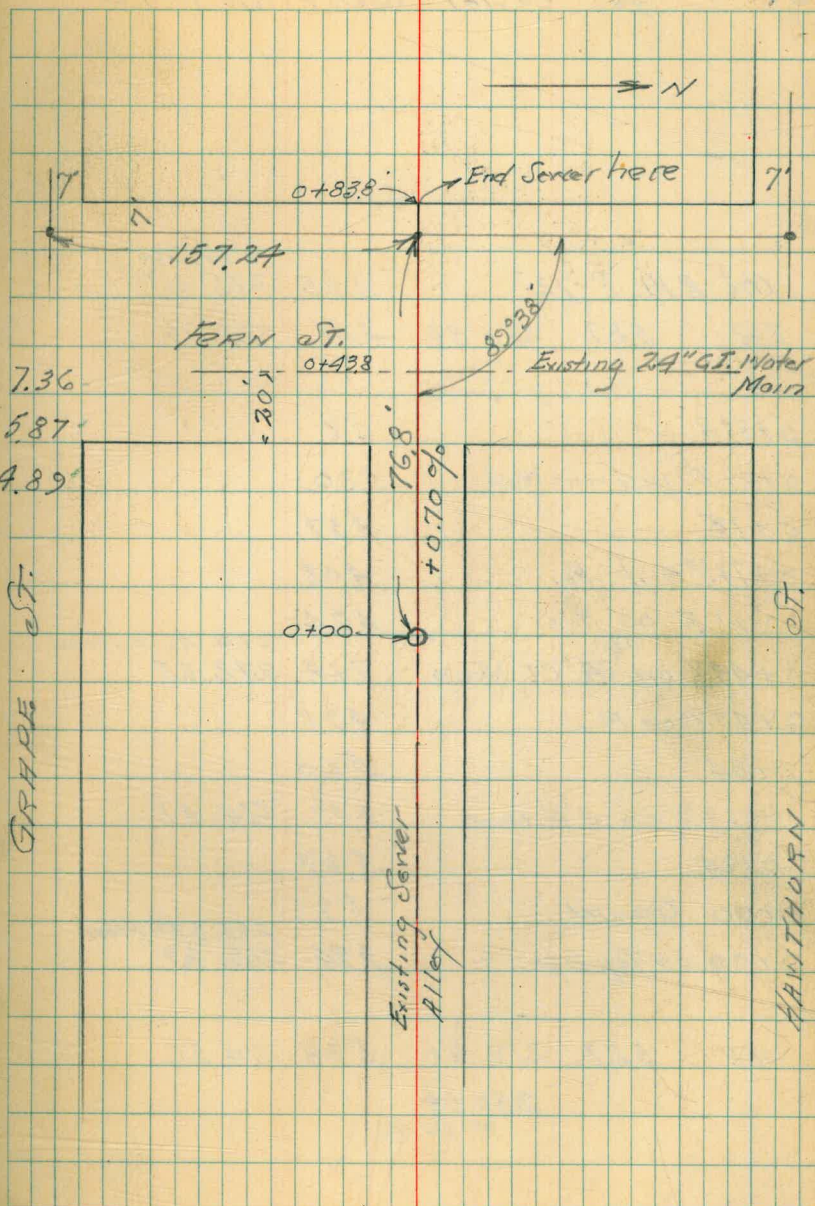 N
0+83.8
End Sewer here
7'
7'
7'
157.24
FERN ST.
0+43.8
89°38'
Existing 24" C.I. Water
Main
20'
7.36
5.87
4.89
76.8'
+0.70%
0+00
GRAPE ST.
HAWTHORN ST.
Existing Sewer
Alley